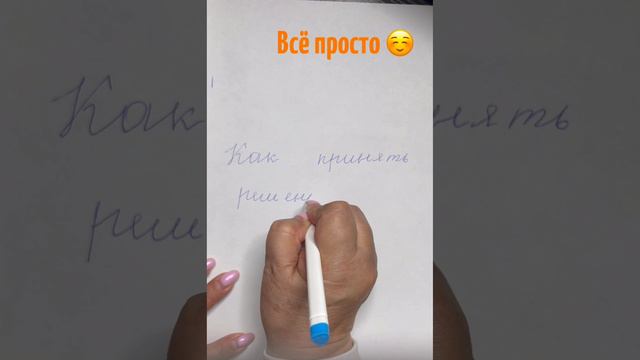 Всё просто ☺️
Как принять
решен